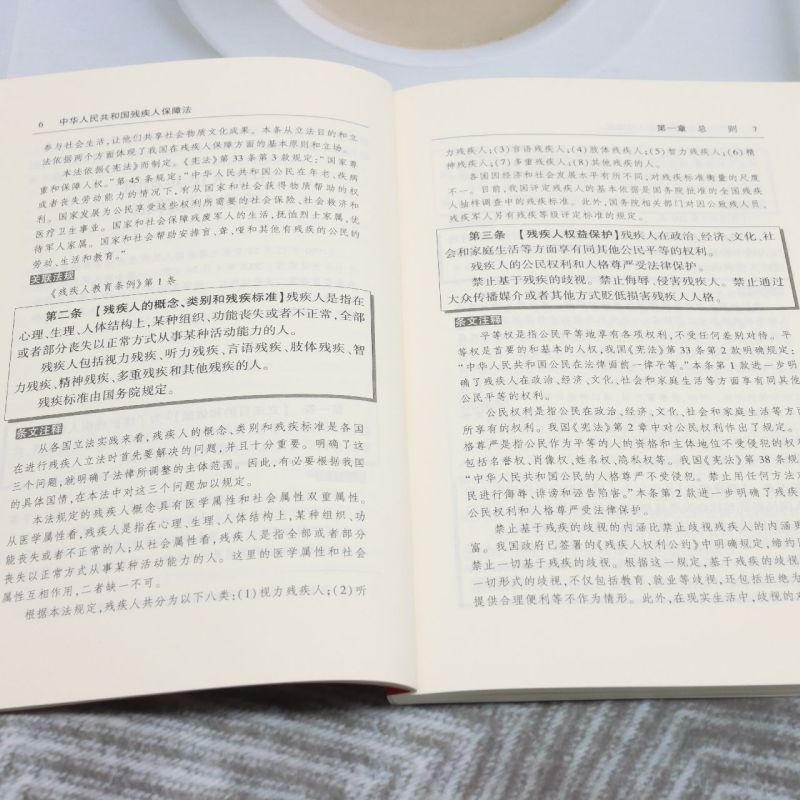 6 中华人民共和国残疾人保障法
参与社会生活,让他们共享社会物质文化成果。本条从立法目的和立
法依据两个方面体现了我国在残疾人保障方面的基本原则和立场。
本法依据《宪法》而制定。《宪法》第33条第3款规定:“国家尊
重和保障人权。”第45条规定:“中华人民共和国公民在年老、疾病
或者丧失劳动能力的情况下,有从国家和社会获得物质帮助的权
利。国家发展为公民享受这些权利所需要的社会保险、社会救济和
医疗卫生事业。国家和社会保障残废军人的生活,抚恤烈士家属,优
待军人家属。国家和社会帮助安排盲、聋、哑和其他有残疾的公民的
劳动、生活和教育。”
关联法规
《残疾人教育条例》第1条
第二条 【残疾人的概念、类别和残疾标准】残疾人是指在
心理、生理、人体结构上,某种组织、功能丧失或者不正常,全部
或者部分丧失以正常方式从事某种活动能力的人。
残疾人包括视力残疾、听力残疾、言语残疾、肢体残疾、智
力残疾、精神残疾、多重残疾和其他残疾的人。
残疾标准由国务院规定。
条文注释
从各国立法实践来看,残疾人的概念、类别和残疾标准是各国
在进行残疾人立法时首先要解决的问题,并且十分重要。明确了这
三个问题,就明确了法律所调整的主体范围。因此,有必要根据我国
的具体国情,在本法中对这三个问题加以规定。
本法规定的残疾人概念具有医学属性和社会属性双重属性。
从医学属性看,残疾人是指在心理、生理、人体结构上,某种组织、功
能丧失或者不正常的人;从社会属性看,残疾人是指全部或者部分
丧失以正常方式从事某种活动能力的人。这里的医学属性和社会
属性互相作用,二者缺一不可。
根据本法规定,残疾人共分为以下八类:(1)视力残疾人;(2)听
第一章 总 则 7
力残疾人;(3)言语残疾人;(4)肢体残疾人;(5)智力残疾人;(6)精
神残疾人;(7)多重残疾人;(8)其他残疾的人。
各国因经济和社会发展水平有所不同,对残疾标准衡量的尺度
不一。目前,我国评定残疾人的基本依据是国务院批准的全国残疾
人抽样调查中的残疾标准。此外,国务院相关部门对因公致残人员、
残疾军人另有残疾等级评定标准的规定。
第三条 【残疾人权益保护】残疾人在政治、经济、文化、社
会和家庭生活等方面享有同其他公民平等的权利。
残疾人的公民权利和人格尊严受法律保护。
禁止基于残疾的歧视。禁止侮辱、侵害残疾人。禁止通过
大众传播媒介或者其他方式贬低损害残疾人人格。
条文注释
平等权是指公民平等地享有各项权利,不受任何差别对待。平
等权是首要的和基本的人权,我国《宪法》第33条第2款明确规定:
“中华人民共和国公民在法律面前一律平等。”本条第1款进一步明
确了残疾人在政治、经济、文化、社会和家庭生活等方面享有同其他
公民平等的权利。
公民权利是指公民在政治、经济、文化、社会和家庭生活等方面
所享有的权利。我国《宪法》第2章中对公民权利作出了规定。
格尊严是指公民作为平等的人的资格和主体地位不受侵犯的权利
包括名誉权、肖像权、姓名权、隐私权等。我国《宪法》第38条规
“中华人民共和国公民的人格尊严不受侵犯。禁止用任何方法对
民进行侮辱、诽谤和诬告陷害。”本条第2款进一步明确了残疾
公民权利和人格尊严受法律保护。
禁止基于残疾的歧视的内涵比禁止歧视残疾人的内涵更
富。我国政府已签署的《残疾人权利公约》中明确规定,缔约国
禁止一切基于残疾的歧视。根据这一规定,基于残疾的歧视
一切形式的歧视,不仅包括教育、就业等歧视,还包括拒绝为
提供合理便利等不作为情形。此外,在现实生活中,歧视的对